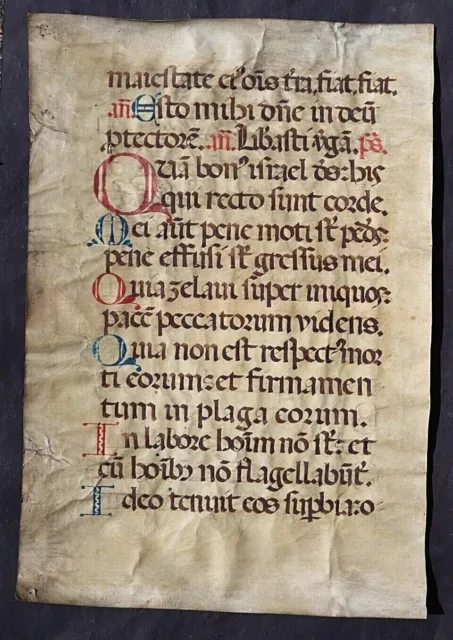 maiestate ei' oīs t̄ra, fiat, fiat.
.añ. Esto mihi dn̄e in deū
ꝓtectorē. .añ. Libasti ỽgā. ps̄.
Quā bonꝰ israel ds̄: his
qui recto sunt corde.
Mei aūt pene moti st̄ pedes:
pene effusi st̄ gressus mei.
Quia zelaui sup̄er iniquos:
pacē peccatorum videns.
Quia non est respectꝰ mor
ti eorum: et firmamen
tum in plaga eorum.
In labore hoīm nō st̄: et
cū hoībꝰ nō flagellabūt̄.
Ideo tenuit eos suꝑbia: o